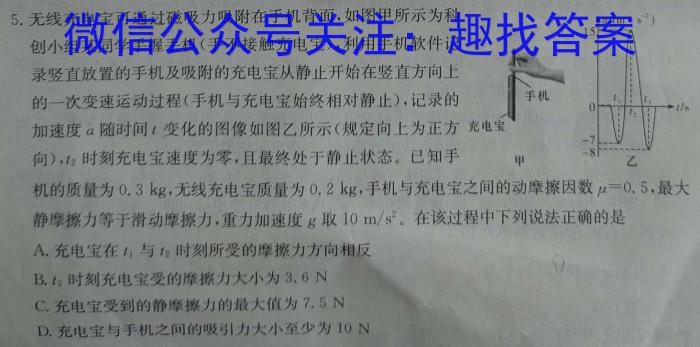 5. 无线充电宝可通过磁吸力吸附在手机背面,如图甲所示为科
微信公众号关注:趣找答案
创小组某同学手握手机(手不接触充电宝),利用手机软件记
录竖直放置的手机及吸附的充电宝从静止开始在竖直方向上
的一次变速运动过程(手机与充电宝始终相对静止),记录的
加速度a随时间t变化的图像如图乙所示(规定向上为正方
向),t₂时刻充电宝速度为零,且最终处于静止状态。已知手
机的质量为0.3 kg,无线充电宝质量为0.2 kg,手机与充电宝之间的动摩擦因数μ=0.5,最大
静摩擦力等于滑动摩擦力,重力加速度g取10 m/s²。在该过程中下列说法正确的是
A. 充电宝在t₁与t₂时刻所受的摩擦力方向相反
B. t₃时刻充电宝受的摩擦力大小为3.6 N
C. 充电宝受到的静摩擦力的最大值为7.5 N
D. 充电宝与手机之间的吸引力大小至少为10 N
手机
充电宝
甲
0
-7
-8
t₁
t₂
t₃
t/s
乙